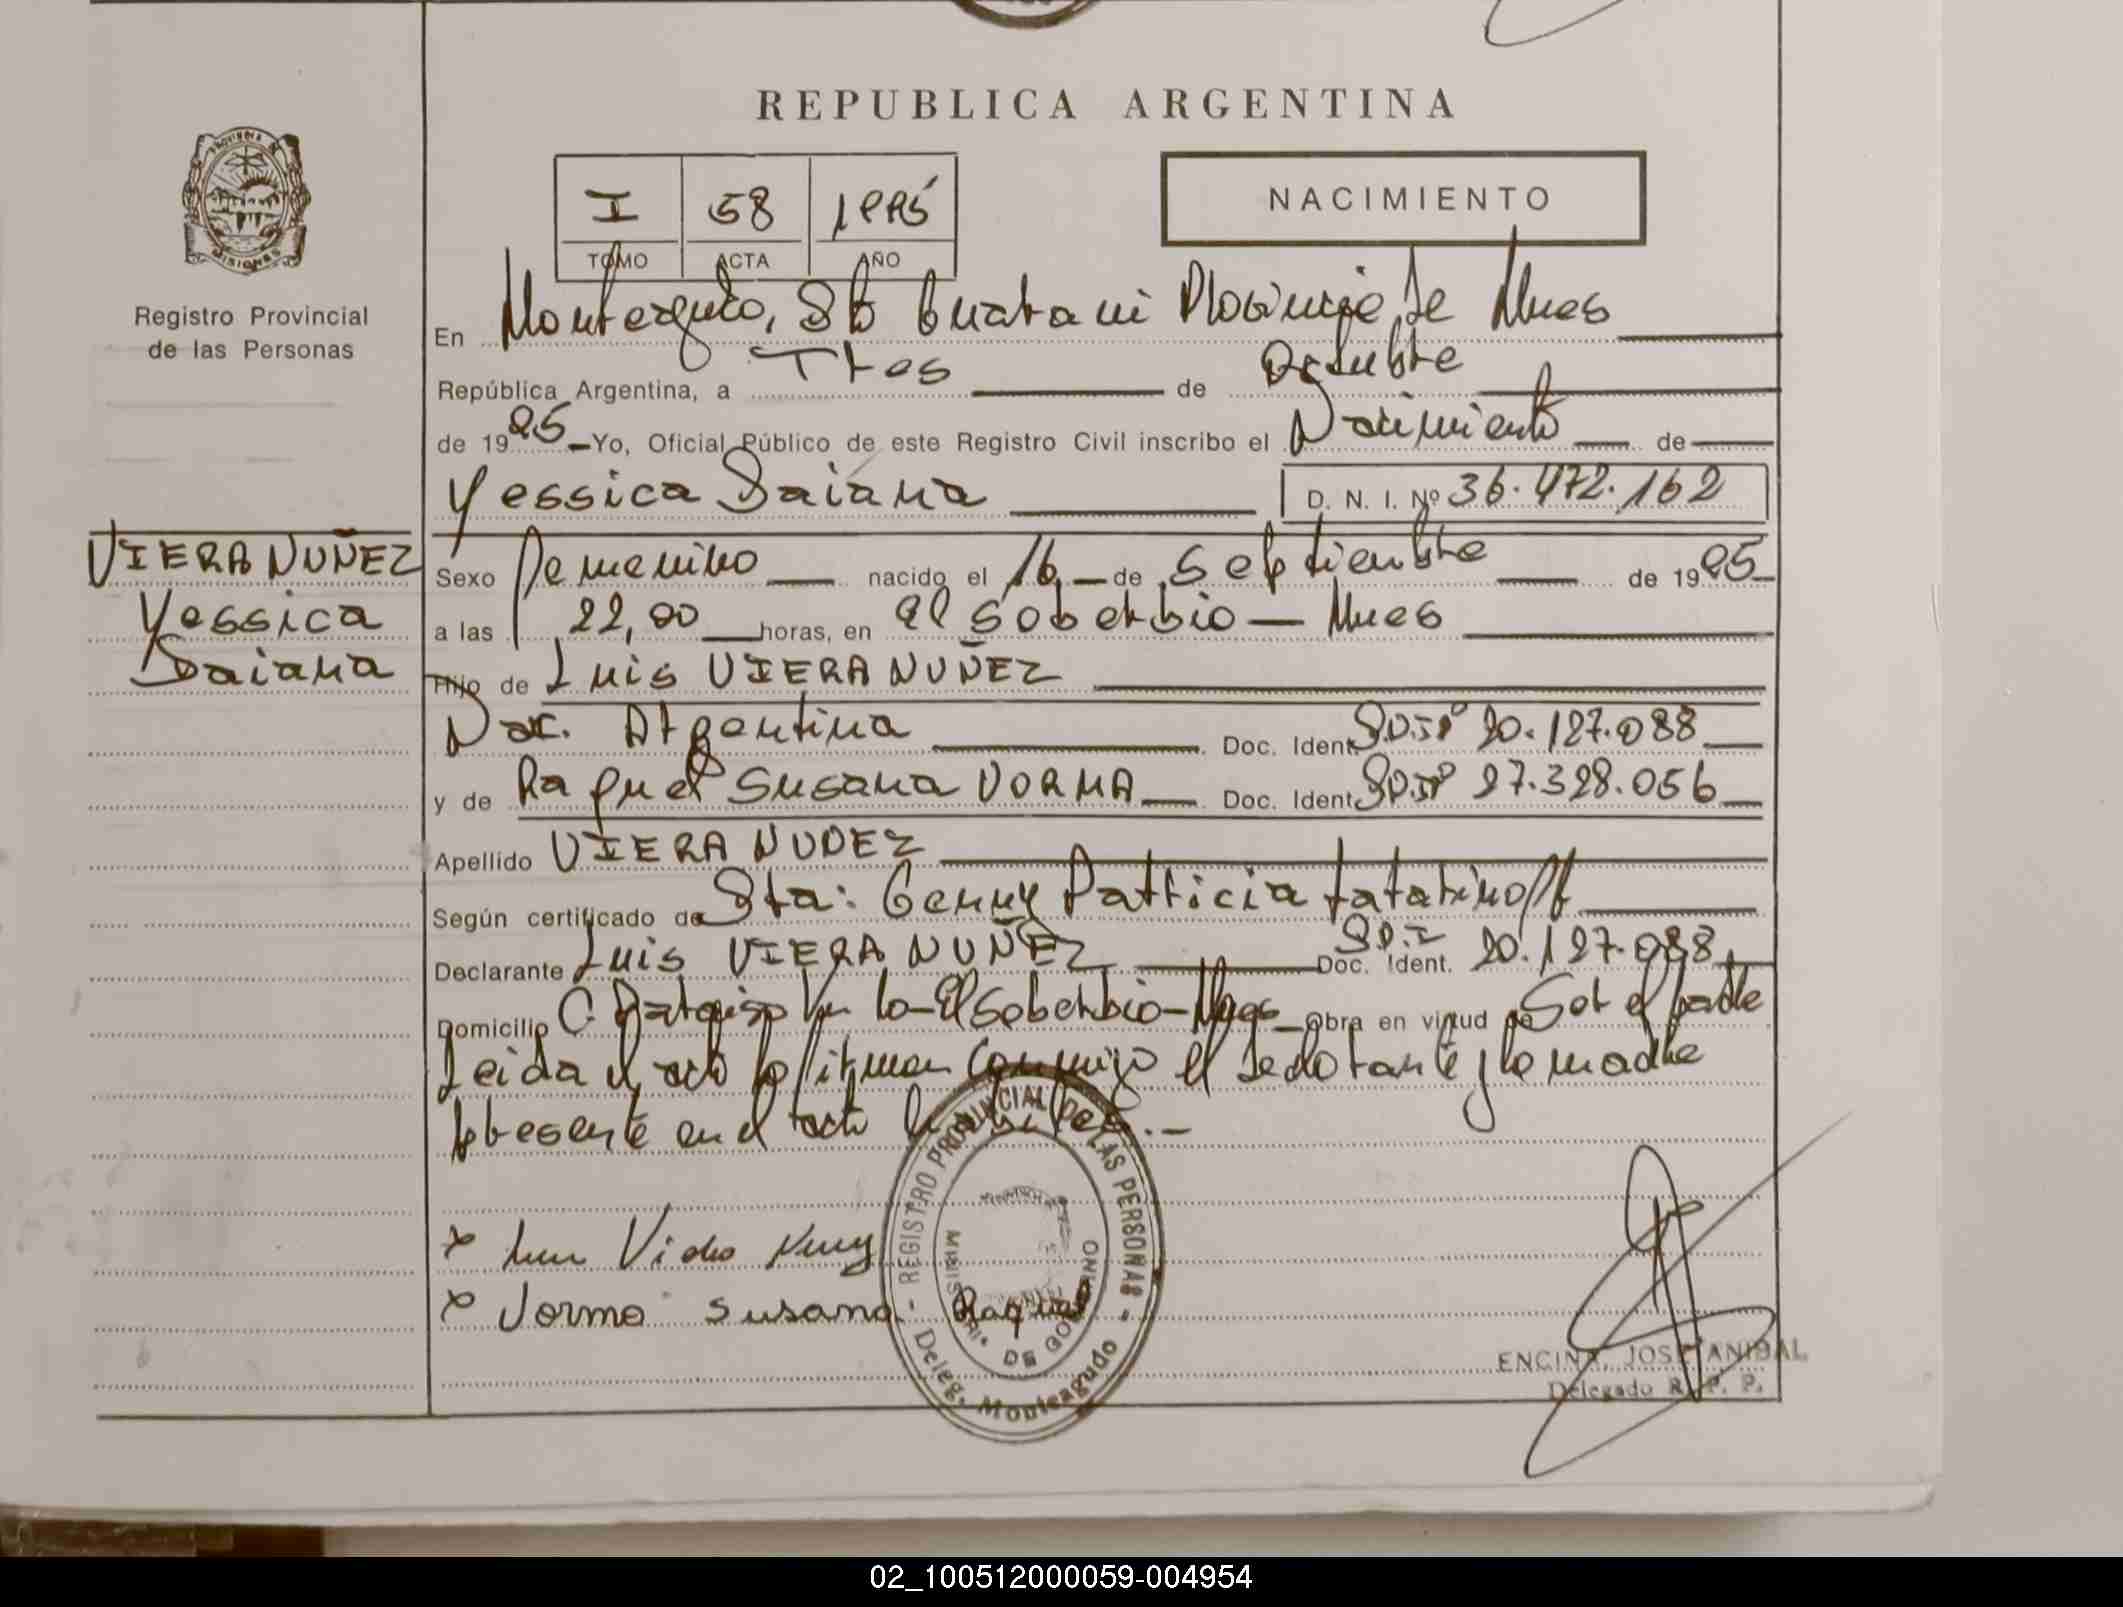 REPUBLICA ARGENTINA
I 58 1995
TOMO ACTA AÑO
NACIMIENTO
Registro Provincial
de las Personas
En Monteagudo, Guarani Provincia de Mnes
República Argentina, a Tres de Octubre
de 1995 Yo, Oficial Público de este Registro Civil inscribo el Nacimiento de
Yessica Daiana D. N. I. Nº 36.472.162
VIERA NUÑEZ
Yessica
Daiana
Sexo Femenino nacido el 16 de Septiembre de 1995
a las 22,00 horas, en El Soberbio — Mnes
Hijo de Luis VIERA NUÑEZ
Nac. Argentina Doc. Ident. 20.127.088
y de Raquel Susana DORMA Doc. Ident. 27.328.056
Apellido VIERA NUÑEZ
Según certificado de Sta: Genny Patricia Tatarinoff
Declarante Luis VIERA NUÑEZ Doc. Ident. D.N.I 20.127.088
Domicilio El Soberbio - Mnes Obra en virtud de Ser el padre
Leida el acta la firman conmigo el declarante y la madre
presente en el acto
REGISTRO PROVINCIAL DE LAS PERSONAS
DE GOBIERNO
Deleg. Monteagudo
x Viera
x Dorma Susana Raquel
ENCINA, JOSE ANIBAL
Delegado R. P. P.
02_100512000059-004954